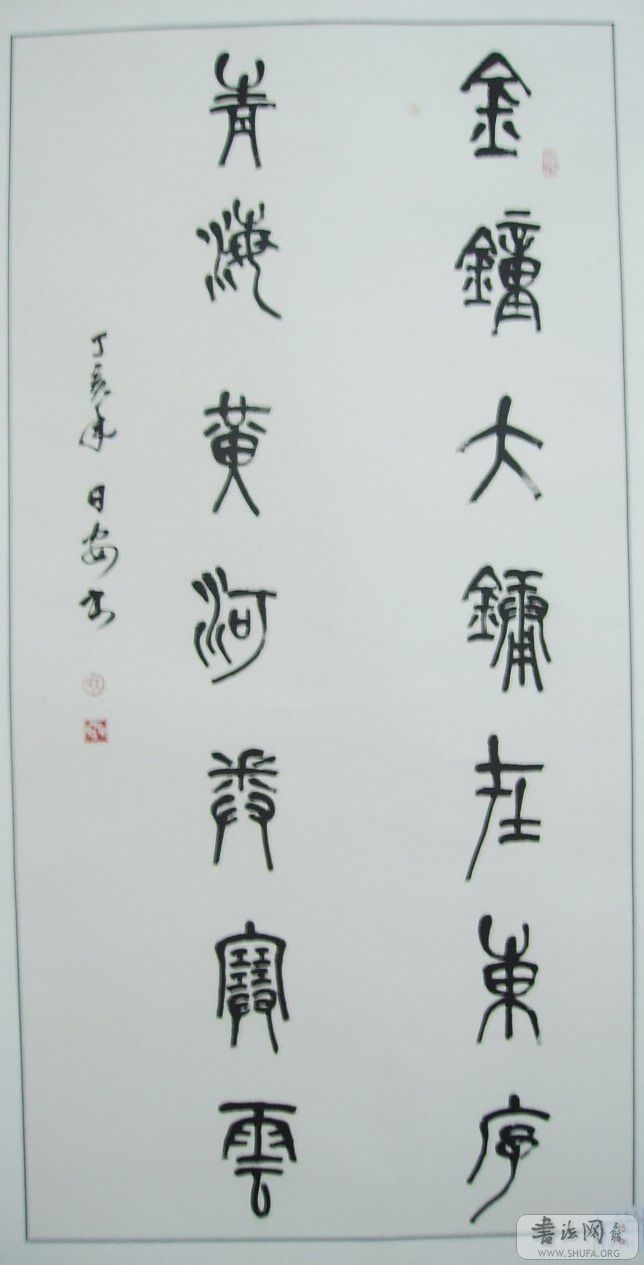 金鐘大鏞在東序
青海黃河卷塞雲
丁亥年 日安书
书法网
WWW.SHUFA.ORG